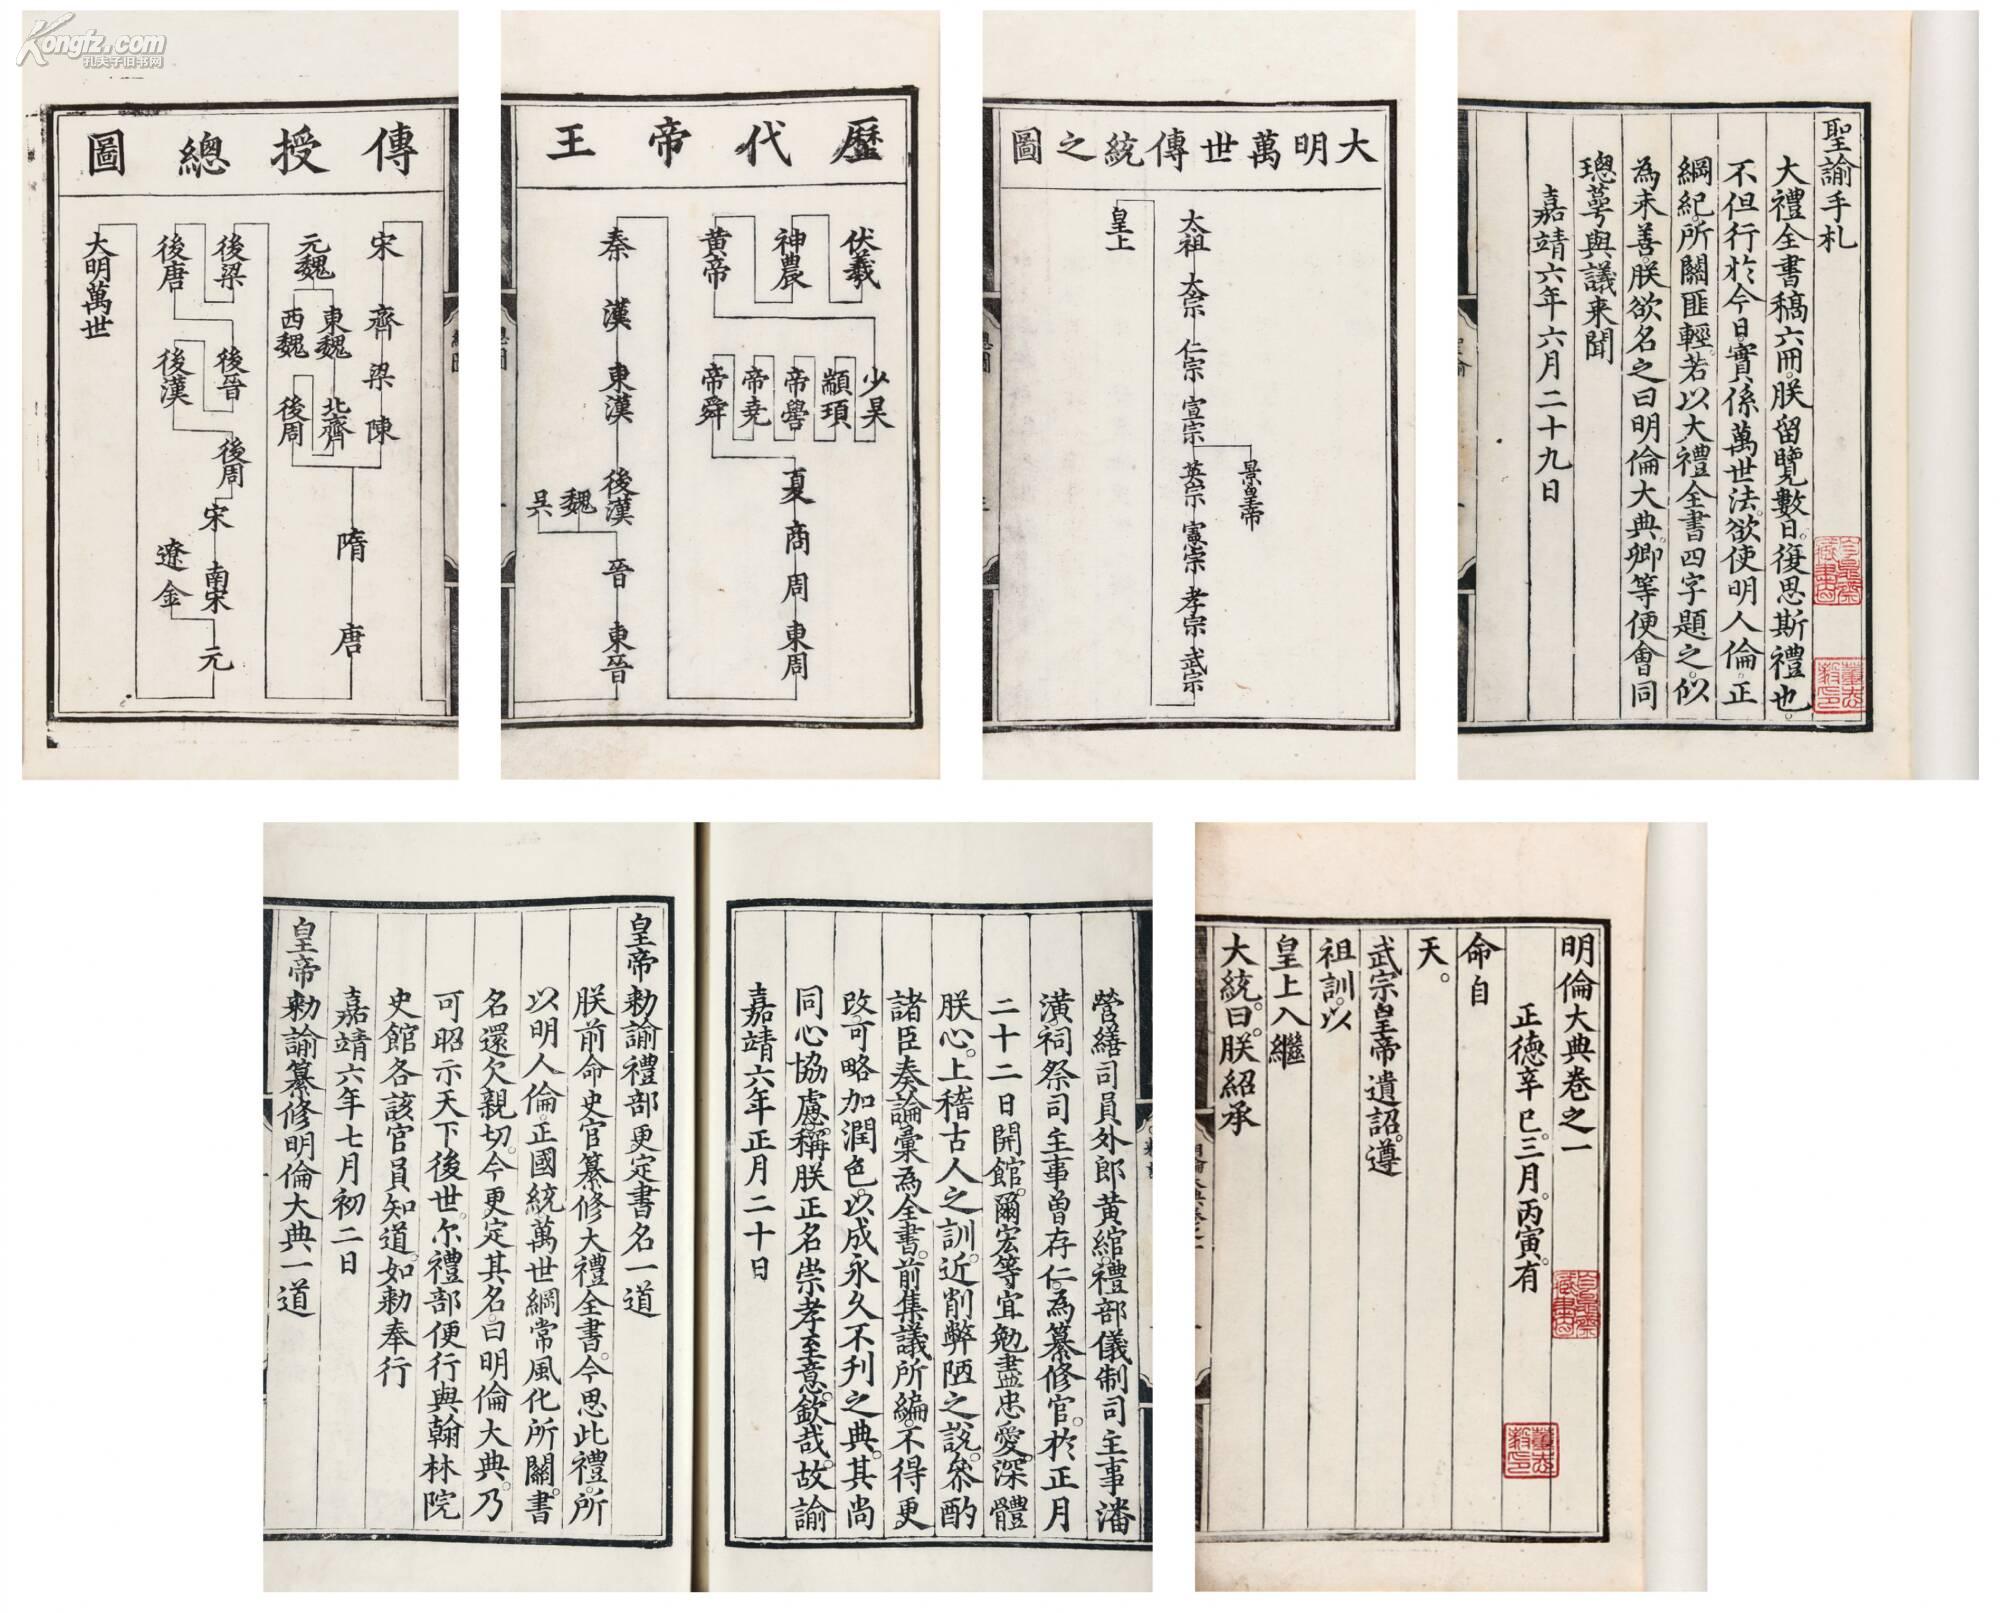 Kongfz.com
孔夫子旧书网
傳授總圖
宋 齊 梁 陳
元魏
東魏 北齊
西魏 後周
隋 唐
後梁
後唐
後晉
後漢
後周
宋 南宋 元
遼 金
大明萬世
歷代帝王
伏羲
神農
黃帝
少昊
顓頊
帝嚳
帝堯
帝舜
夏 商 周 東周
秦 漢 東漢 後漢 晉 東晉
魏
吳
大明萬世傳統之圖
太祖 太宗 仁宗 宣宗 英宗 憲宗 孝宗 武宗
景皇帝
皇上
聖諭手札
大禮全書稿六冊。朕留覽數日。復思斯禮也。
不但行於今日。實係萬世法。欲使明人倫。正
綱紀。所關匪輕。若以大禮全書四字題之。似
為未善。朕欲名之曰明倫大典。卿等便會同
璁萼與議来聞
嘉靖六年六月二十九日
營繕司員外郎黃綰。禮部儀制司主事潘
潢。祠祭司主事曾存仁。為纂修官。於正月
二十二日開館。爾宏等宜勉盡忠愛。深體
朕心。上稽古人之訓。近削弊陋之說。叅酌
諸臣奏論。彙為全書。前集議所編。不得更
改。可略加潤色。以成永久不刊之典。其尚
同心協慮。稱朕正名崇孝至意。欽哉。故諭
嘉靖六年正月二十日
皇帝勅諭禮部更定書名一道
朕前命史官纂修大禮全書。今思此禮。所
以明人倫。正國統。萬世綱常風化所關。書
名還欠親切。今更定其名。曰明倫大典。乃
可昭示天下後世。尔禮部便行與翰林院
史館各該官員知道。如勅奉行
嘉靖六年七月初二日
皇帝勅諭纂修明倫大典一道
明倫大典卷之一
正德辛巳。三月。丙寅。有
命自
天。
武宗皇帝遺詔。遵
祖訓。以
皇上入繼
大統。曰。朕紹承